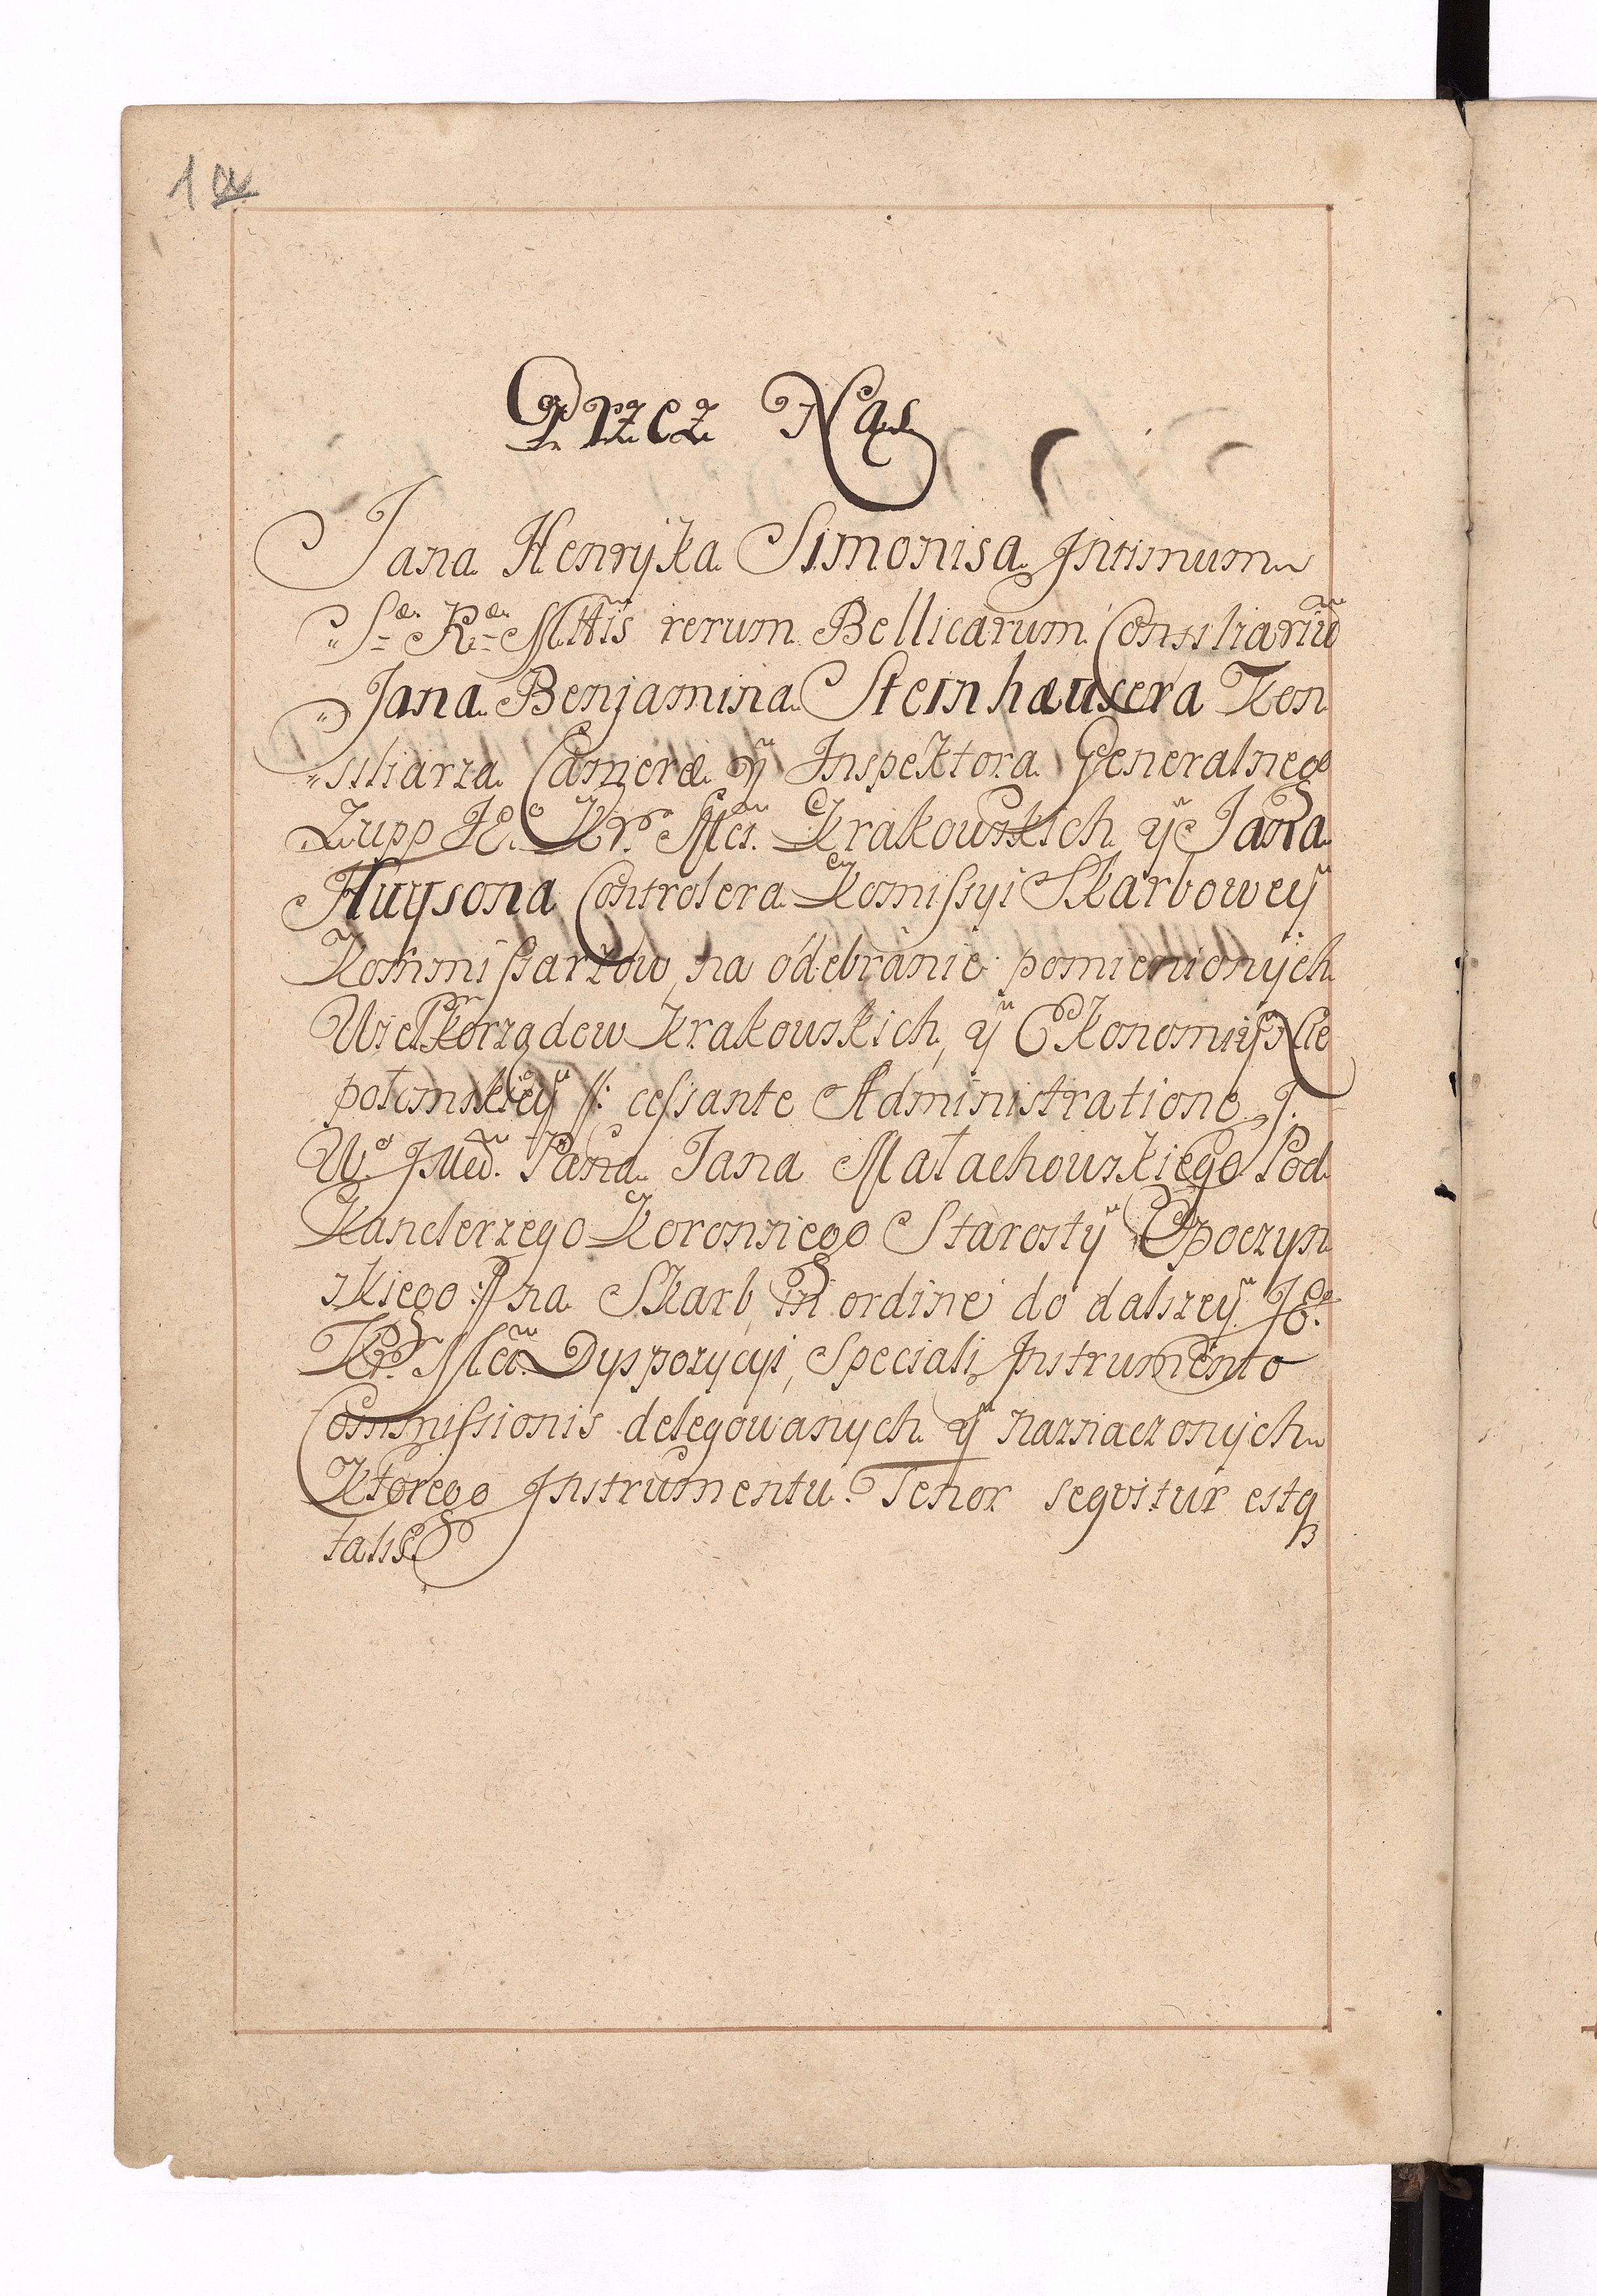 1a
Przez Nas
Jana Henryka Simonisa Intimum
Sæ Ræ Mttis rerum Bellicarum Consiliariũ
Jana Benjamina Steinhæusera Kon
siliarza Cameræ ÿ Inspektora Generalnego
Zupp JE. Kr. Mci. Krakowskich ÿ Jana
Huysona Controlera Komissyi Skarbowey
Kommissarzow, na odebranie pomienionych
Wielkorządow Krakowskich, ÿ Ekonomiy Nie
połomskiey /: cessante Administratione J.
W. Pana Jana Małachowskiego Pod
Kanclerzego Koronnego Starosty Opoczyn
skiego :/ na Skarb, in ordine do dalszey JE.
Kr. Mci. Dyspozycyi, Speciali Instrumento
Commissionis delegowanych ÿ naznaczonych
Ktorego Instrumentu Tenor seqvitur estq
talis